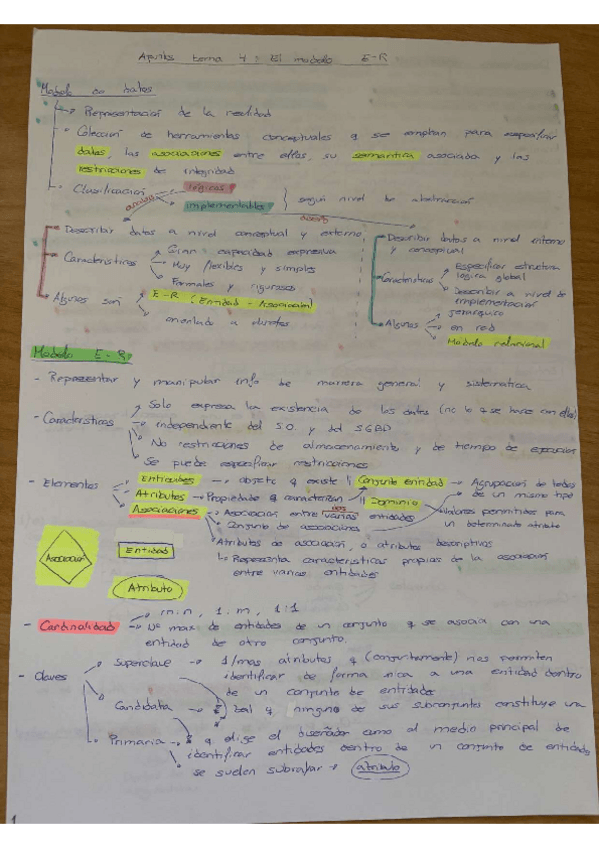 Apuntes tema 4: El modelo E-R
Modelo de datos
Representación de la realidad
Colección de herramientas conceptuales q se emplean para especificar
datos, las asociaciones entre ellos, su semantica asociada y las
restricciones de integridad
Clasificación lógicos
implementables } según nivel de abstracción
Describir datos a nivel conceptual y externo
Características Gran capacidad expresiva
Muy flexibles y simples
Formales y rigurosos
Algunos son E-R (Entidad - Asociación)
orientado a objetos
Describir datos a nivel interno
y conceptual
Características Especificar estructura
lógica global
Describir a nivel de
implementación
Algunos jerárquico
en red
Modelo relacional
Modelo E-R
- Representar y manipular info de manera general y sistematica
- Características Solo expresa la existencia de los datos (no lo q se hace con ellos)
independiente del S.O. y del SGBD
No restricciones de almacenamiento y de tiempo de ejecución
Se puede especificar restricciones
- Elementos Entidades → objeto q existe || Conjunto entidad → Agrupación de todos
de un mismo tipo
Atributos → Propiedades q caracterizan || Dominio → Valores permitidos para
un determinado atributo
Asociaciones → Asociación entre dos varias entidades
Conjunto de asociaciones
Atributos de asociación, o atributos descriptivos
Representa características propias de la asociación
entre varias entidades
Asociación
Entidad
Atributo
- Cardinalidad → m:n, 1:m, 1:1
Nº max de entidades de un conjunto q se asocia con una
entidad de otro conjunto.
- Claves Superclave → 1/mas atributos q (conjuntamente) nos permiten
identificar de forma unica a una entidad dentro
de un conjunto de entidades
Candidata → tal q ninguno de sus subconjuntos constituye una
Primaria → q elige el diseñador como el medio principal de
identificar entidades dentro de un conjunto de entidades
se suelen subrayar → atributo
1